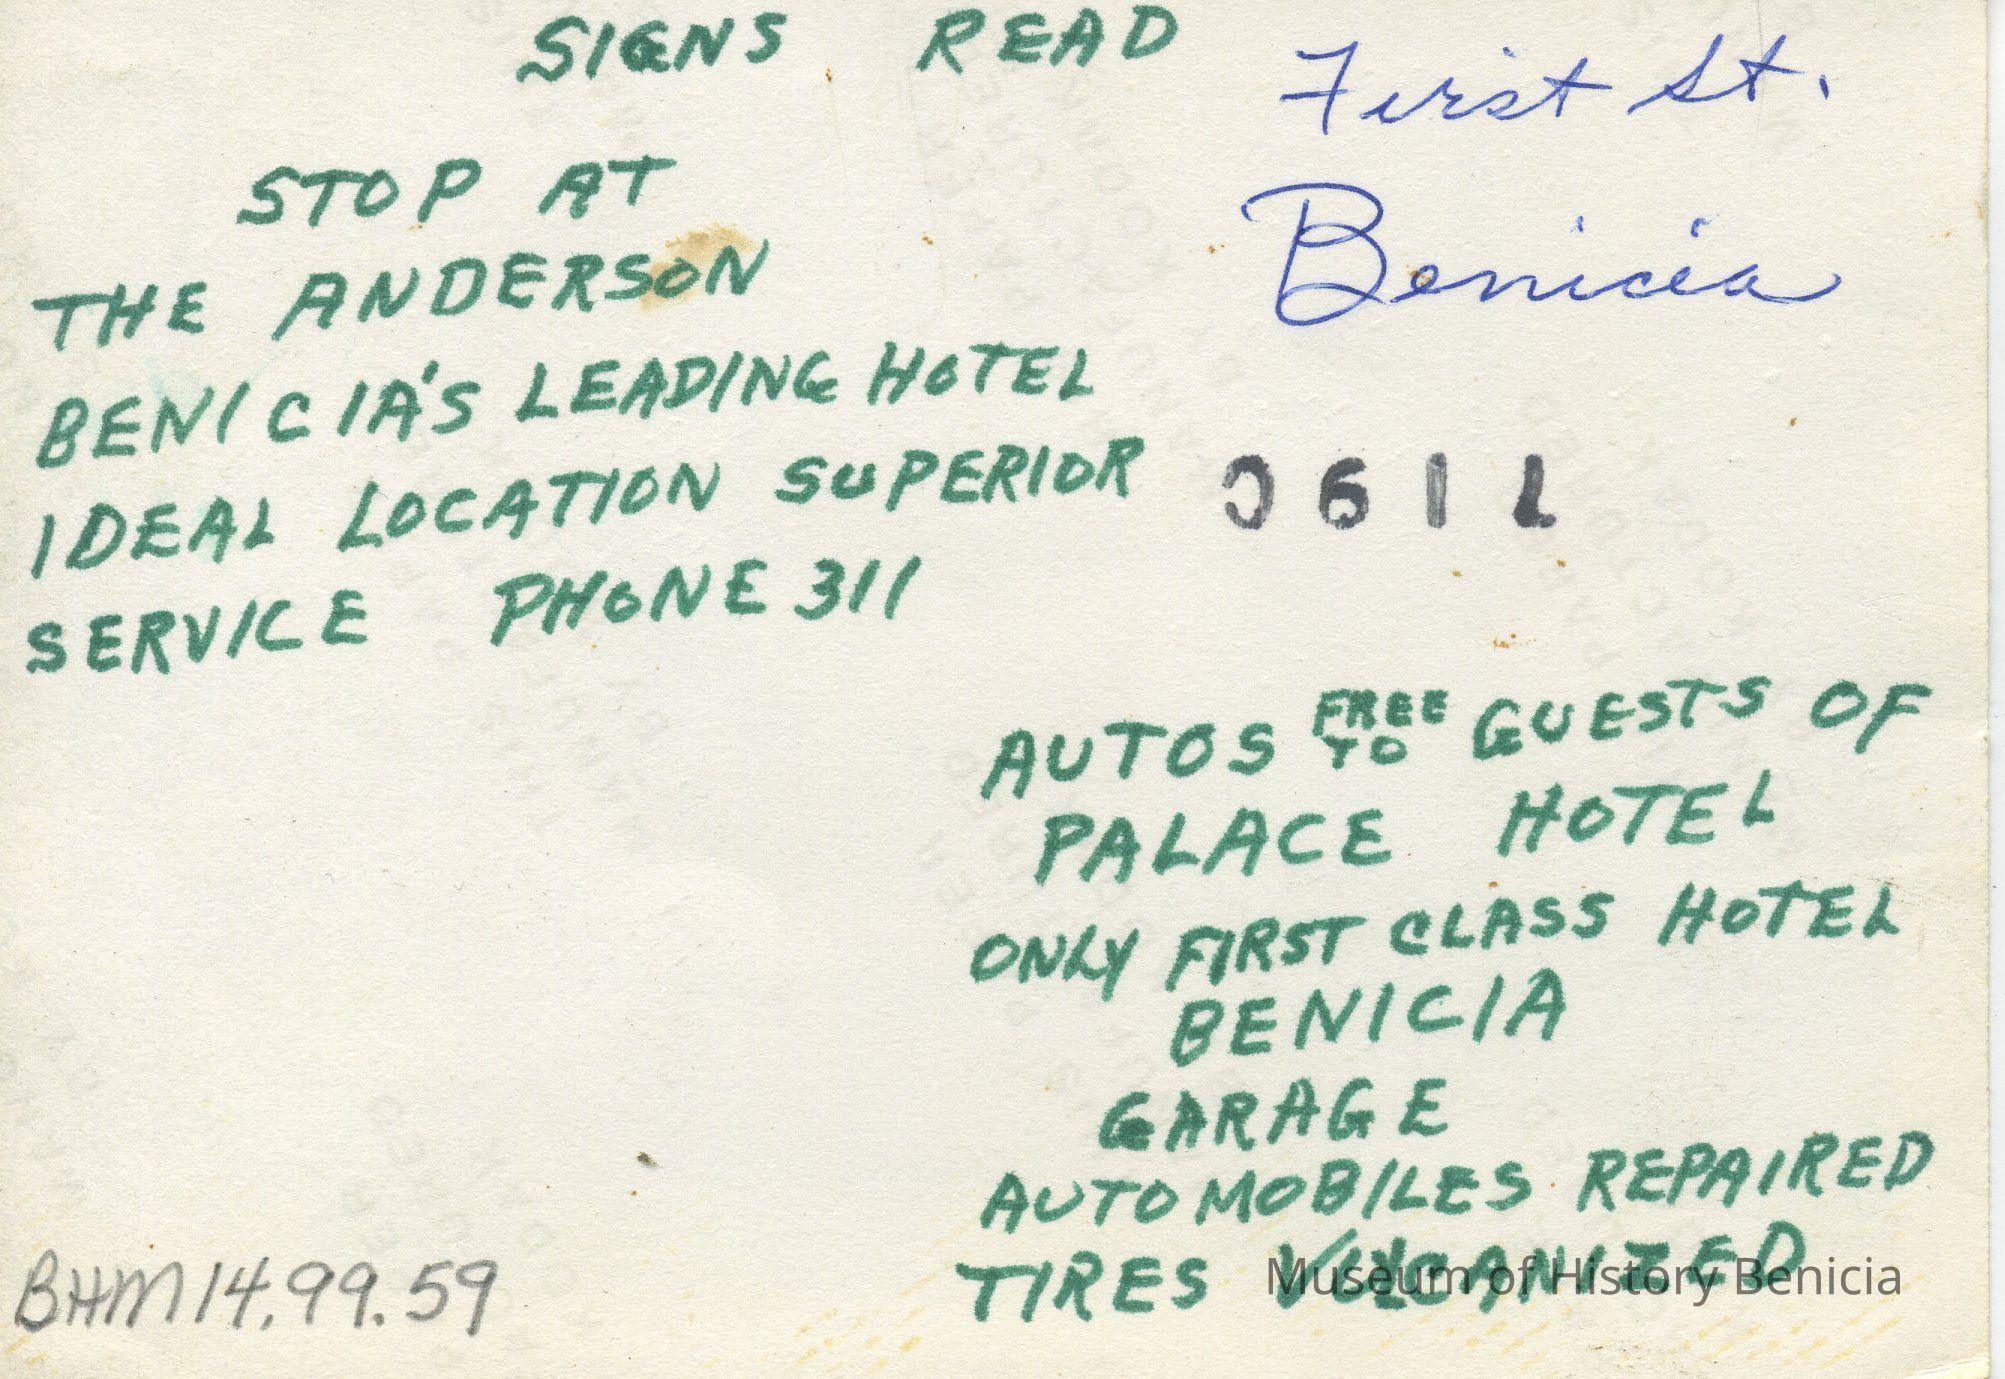 SIGNS READ
First St.
Benicia
STOP AT
THE ANDERSON
BENICIA'S LEADING HOTEL
IDEAL LOCATION SUPERIOR
SERVICE PHONE 311
0611
AUTOS FREE TO GUESTS OF
PALACE HOTEL
ONLY FIRST CLASS HOTEL
BENICIA
GARAGE
AUTOMOBILES REPAIRED
TIRES VULCANIZED
BHM14.99.59
Museum of History Benicia